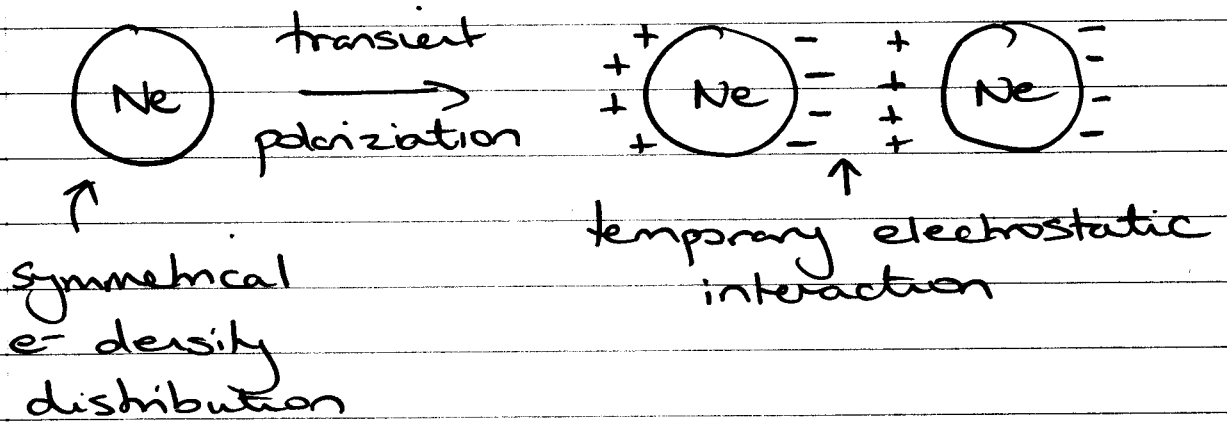 transient
Ne
polariziation
+ Ne - + Ne -
+ - + -
+ - + -
+ - + -
symmetrical
e- density
distribution
temporary electrostatic
interaction